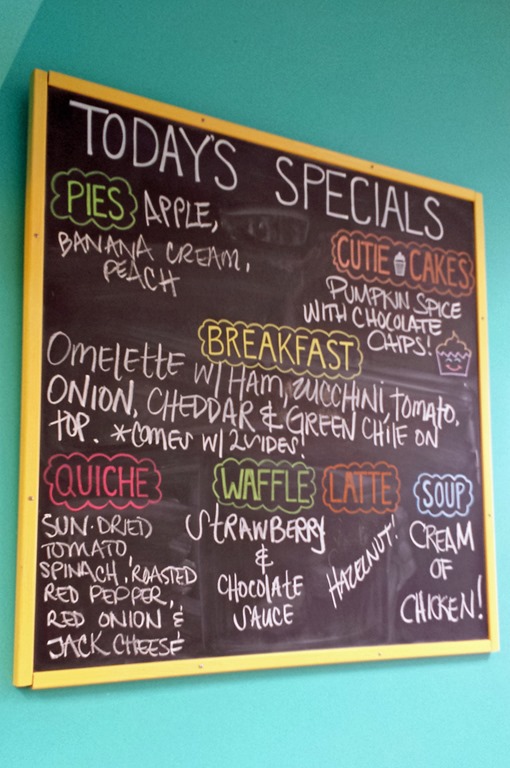 TODAY'S SPECIALS
PIES APPLE,
BANANA CREAM,
PEACH
CUTIE CAKES
PUMPKIN SPICE
WITH CHOCOLATE
CHIPS!
BREAKFAST
OMELETTE W/ HAM, ZUCCHINI, TOMATO,
ONION, CHEDDAR & GREEN CHILE ON
TOP. *COMES W/ 2 SIDES!
QUICHE
SUN-DRIED
TOMATO,
SPINACH, ROASTED
RED PEPPER,
RED ONION &
JACK CHEESE
WAFFLE
STRAWBERRY
&
CHOCOLATE
SAUCE
LATTE
HAZELNUT!
SOUP
CREAM
OF
CHICKEN!